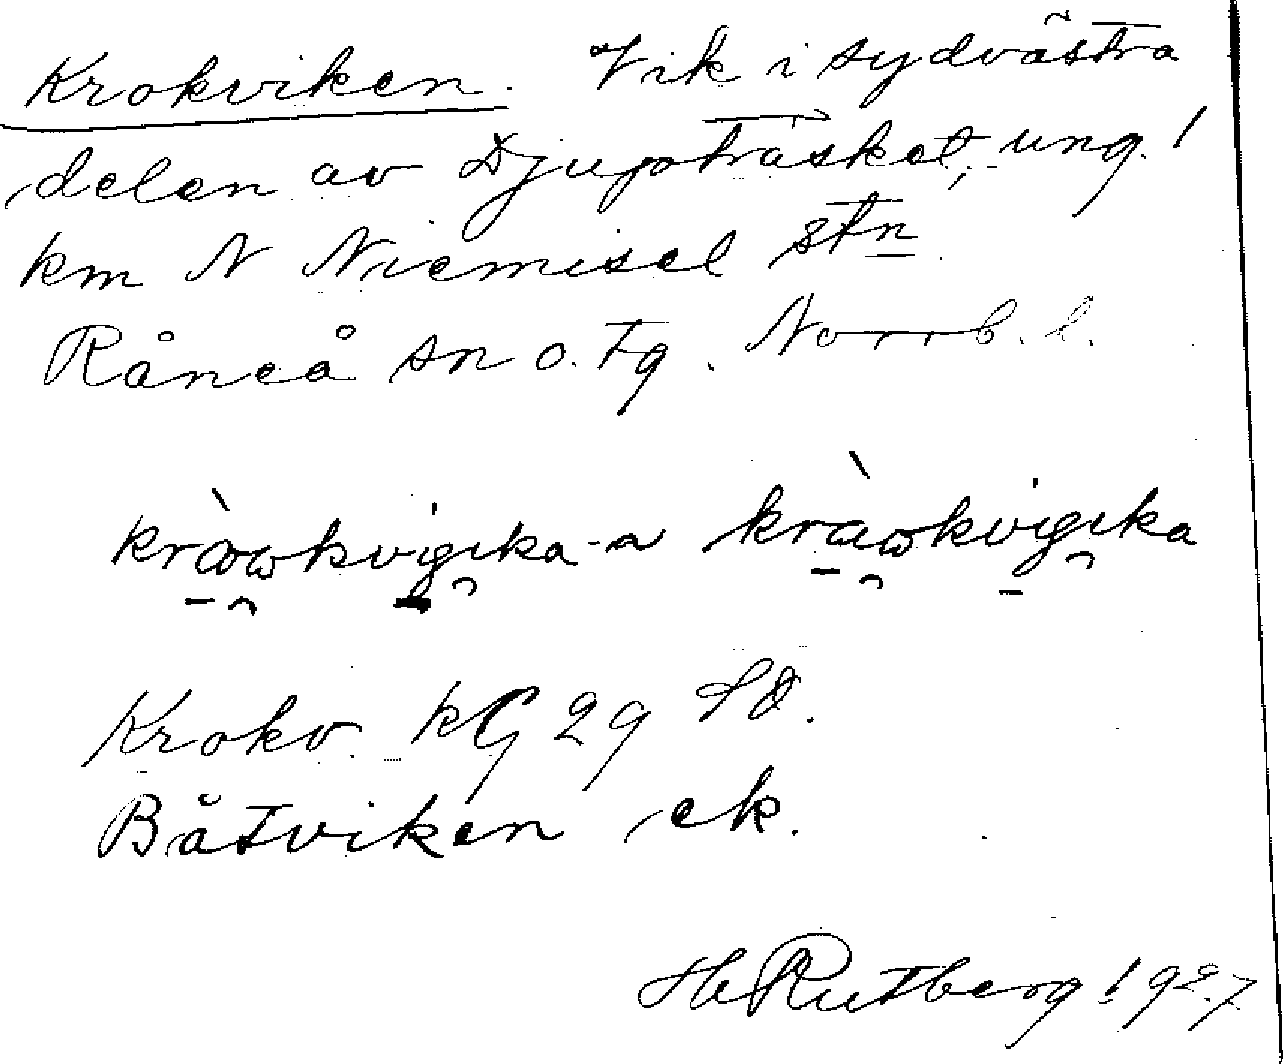 Krokviken. Vik i sydvästra
delen av Djupträsket, ung. 1
km N Niemisel stn
Råneå sn o. tg. Norrb. l.
kràwkvigika -a kràwkvigika
Krokv. kG 29
Båtviken ek.
H Rutberg 1927